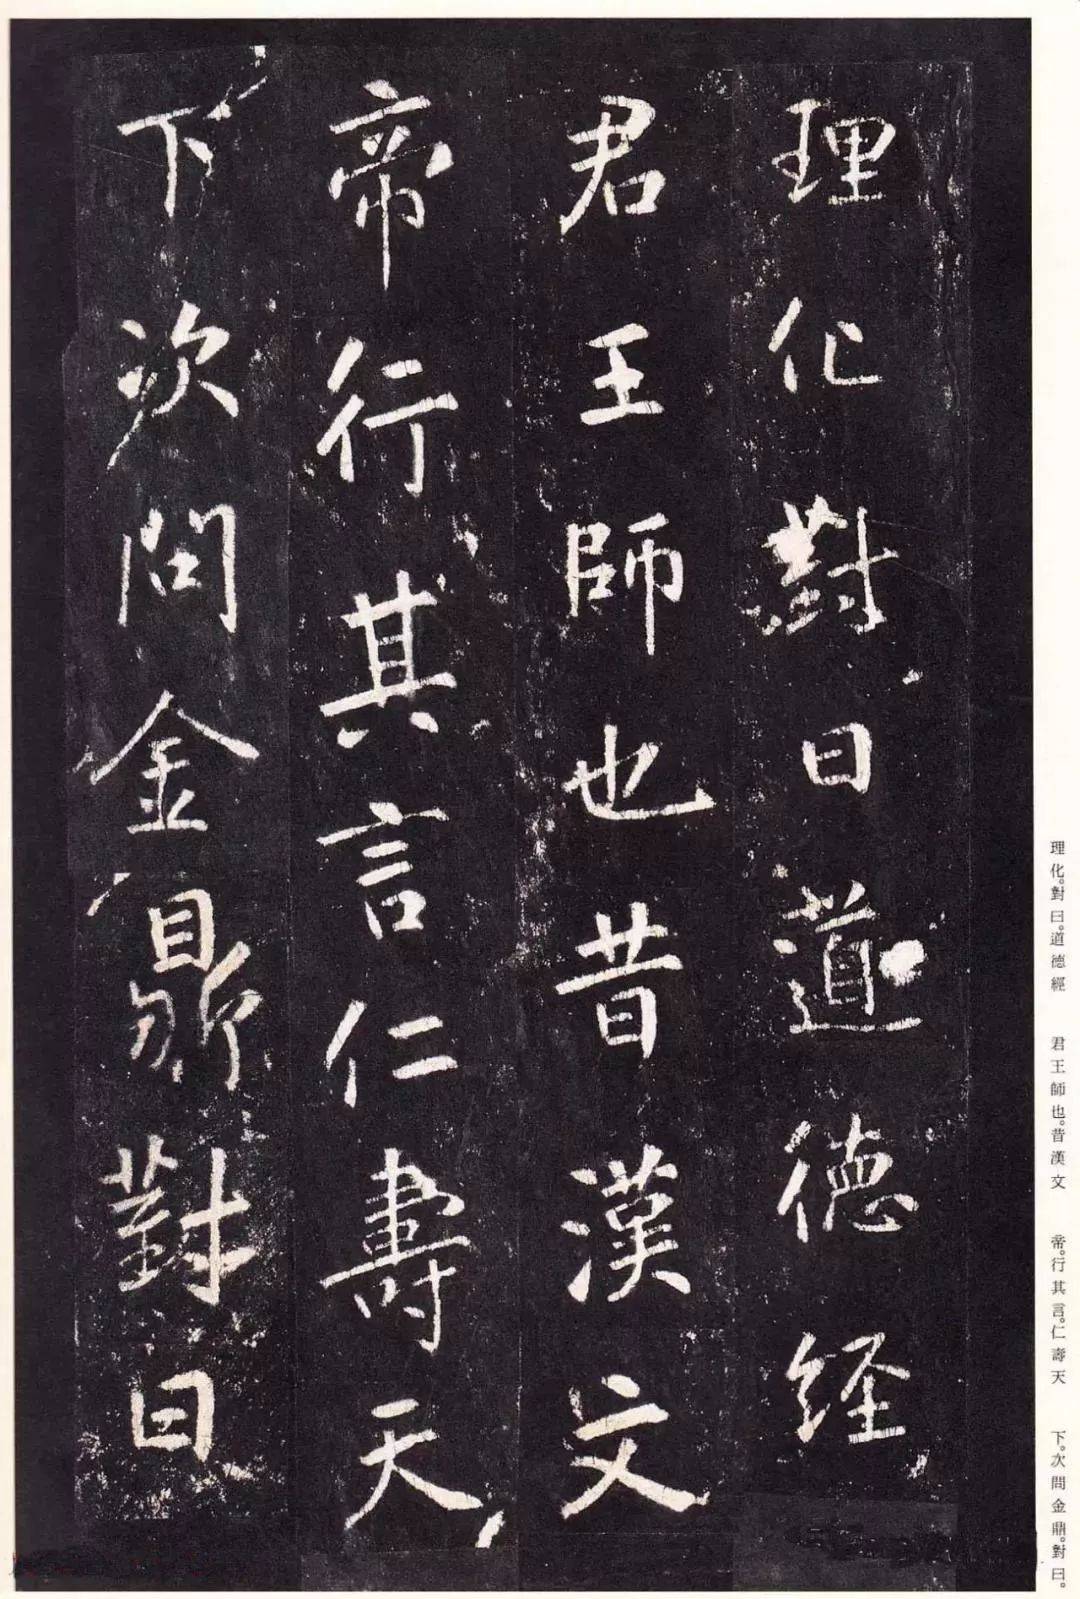 理化對曰道德經
君王師也昔漢文
帝行其言仁壽天
下次問金鼎對曰
理化。對曰。道德經
君王師也。昔漢文
帝。行其言。仁壽天
下。次問金鼎。對曰。